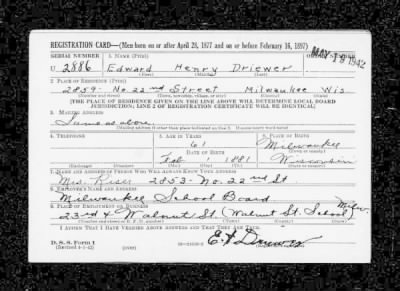 REGISTRATION CARD—(Men born on or after April 28, 1877 and on or before February 16, 1897)
SERIAL NUMBER 1. NAME (Print) ORDER NUMBER
U 2886 Edward Henry Driewer MAY 18 1942
(First) (Middle) (Last)
2. PLACE OF RESIDENCE (Print)
2859- No. 22nd Street Milwaukee Wis
(Number and street) (Town, township, village, or city) (County) (State)
[THE PLACE OF RESIDENCE GIVEN ON THE LINE ABOVE WILL DETERMINE LOCAL BOARD
JURISDICTION; LINE 2 OF REGISTRATION CERTIFICATE WILL BE IDENTICAL]
3. MAILING ADDRESS
Same as above
[Mailing address if other than place indicated on line 2. If same insert word same]
4. TELEPHONE 5. AGE IN YEARS 6. PLACE OF BIRTH
61 Milwaukee
DATE OF BIRTH (Town or county)
Feb 1 1881 Wisconsin
(Exchange) (Number) (Mo.) (Day) (Yr.) (State or country)
7. NAME AND ADDRESS OF PERSON WHO WILL ALWAYS KNOW YOUR ADDRESS
Mrs. 2853- No. 22nd St
8. EMPLOYER'S NAME AND ADDRESS
Milwaukee School Board
9. PLACE OF EMPLOYMENT OR BUSINESS
23rd & Walnut St. (Walnut St. School) Milw.
(Number and street or R. F. D. number) (Town) (County) (State)
I AFFIRM THAT I HAVE VERIFIED ABOVE ANSWERS AND THAT THEY ARE TRUE.
D. S. S. Form 1
(Revised 4-1-42) (over)